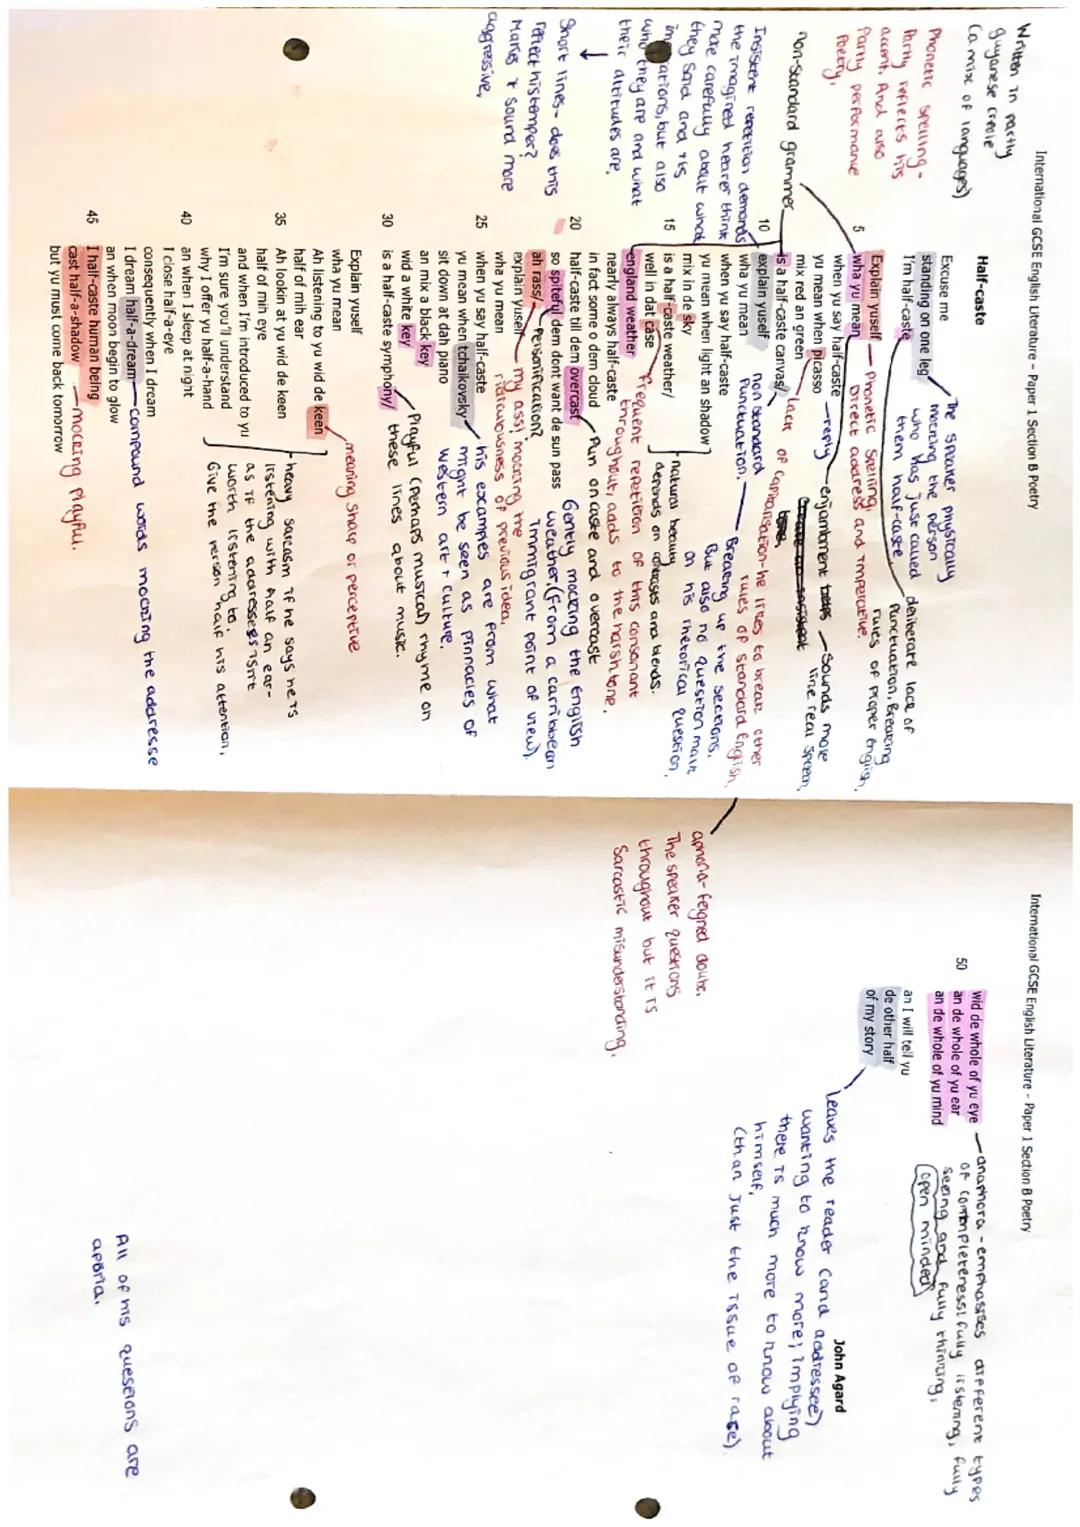 International GCSE English Literature - Paper 1 Section B Poetry
Written in partly
guyanese creole
(a mix of languages)
Phonetic spelling -
Partly reflects his
accent, And also
Partly performance
Poetry,
non-standard grammer
Insistent repetition demands
the imagined hearer think
more carefully about what
they said and its
who they are and what
their attitudes are,
Short lines - does this
reflect his temper?
Makes it sound more
aggressive,
Half-caste
Excuse me
standing on one leg
I'm half-caste
5 Explain yuself
wha yu mean
when you say half-caste
yu mean when picasso
mix red an green
10 is a half-caste canvas/
explain yuself
wha yu mean
when yu say half-caste
yu mean when light an shadow
15 mix in de sky
is a half-caste weather/
well in dat case
england weather
nearly always half-caste
20 in fact some o dem cloud
half-caste till dem overcast
so spiteful dem dont want de sun pass
ah rass/
explain yuself
25 wha yu mean
when you say half-caste
yu mean when tchaikovsky
sit down at dah piano
an mix a black key
30 wid a white key
is a half-caste symphony/
Explain yuself
wha yu mean
Ah listening to yu wid de keen
35 half of mih ear
Ah lookin at yu wid de keen
half of mih eye
and when I'm introduced to yu
I'm sure you'll understand
40 why I offer yu half-a-hand
an when I sleep at night
I close half-a-eye
consequently when I dream
I dream half-a-dream
45 an when moon begin to glow
I half-caste human being
cast half-a-shadow
but yu must come back tomorrow
The speaker physically
meaning the person
who has just called
them half-caste,
deliberate lack of
Punctuation, Breaking
rules of proper English,
Phonetic Spelling,
Direct address and imperative.
reply
enjambment
Sounds more
like real speech,
Lack of capitalisation - he likes to break other
rules of standard English,
non standard
Punctuation,
Breaking up the sections.
But also no question mark
on his rhetorical question,
natural beauty
depends on and blends.
Frequent repetition of this consonant
throughout, adds to the harsh tone.
Pun on caste and overcast
Gently mocking the English
weather, (From a carribbean
immigrant point of view).
Personification?
my ass! mocking the
ridiculousness of previous idea,
his examples are from what
might be seen as pinnacles of
western art + culture.
Playful (perhaps musical) rhyme on
these lines about music.
meaning sharp or perceptive
heavy sarcasm if he says he is
listening with half an ear -
as if the addressee isn't
worth listening to.
Give the person half his attention,
compound words mocking the addresse
mocking playful.
International GCSE English Literature - Paper 1 Section B Poetry
wid de whole of yu eye
50 an de whole of yu ear
an de whole of yu mind
an I will tell yu
de other half
of my story
John Agard
anaphora - emphasises different types
of completeness! fully listening, fully
seeing and fully thinking,
open minded
Leaves the reader (and addressee)
wanting to know more; implying
there is much more to know about
himself,
(than just the issue of race).
aporia - feigned doubt.
The speaker questions
throughout but it is
Sarcastic misunderstanding.
All of his questions are
aporia.